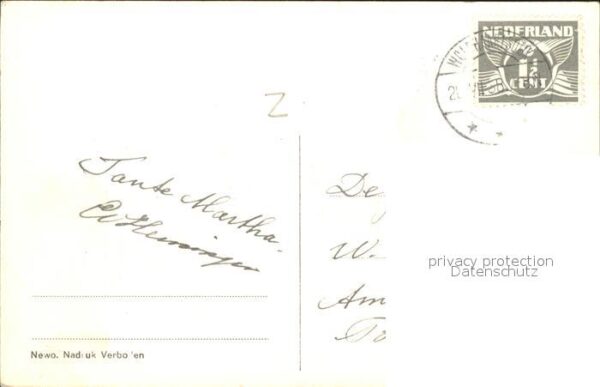 NEDERLAND
1½
CENT
Z
Tante Martha.
De
W.
Am
privacy protection
Datenschutz
Newo. Nadruk Verbo'en